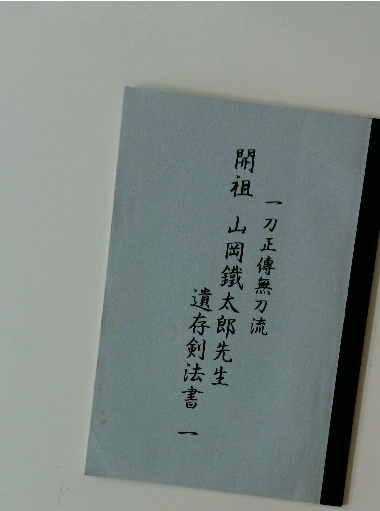 一刀正傳無刀流
開祖 山岡鐵太郎先生
遺存剣法書 一